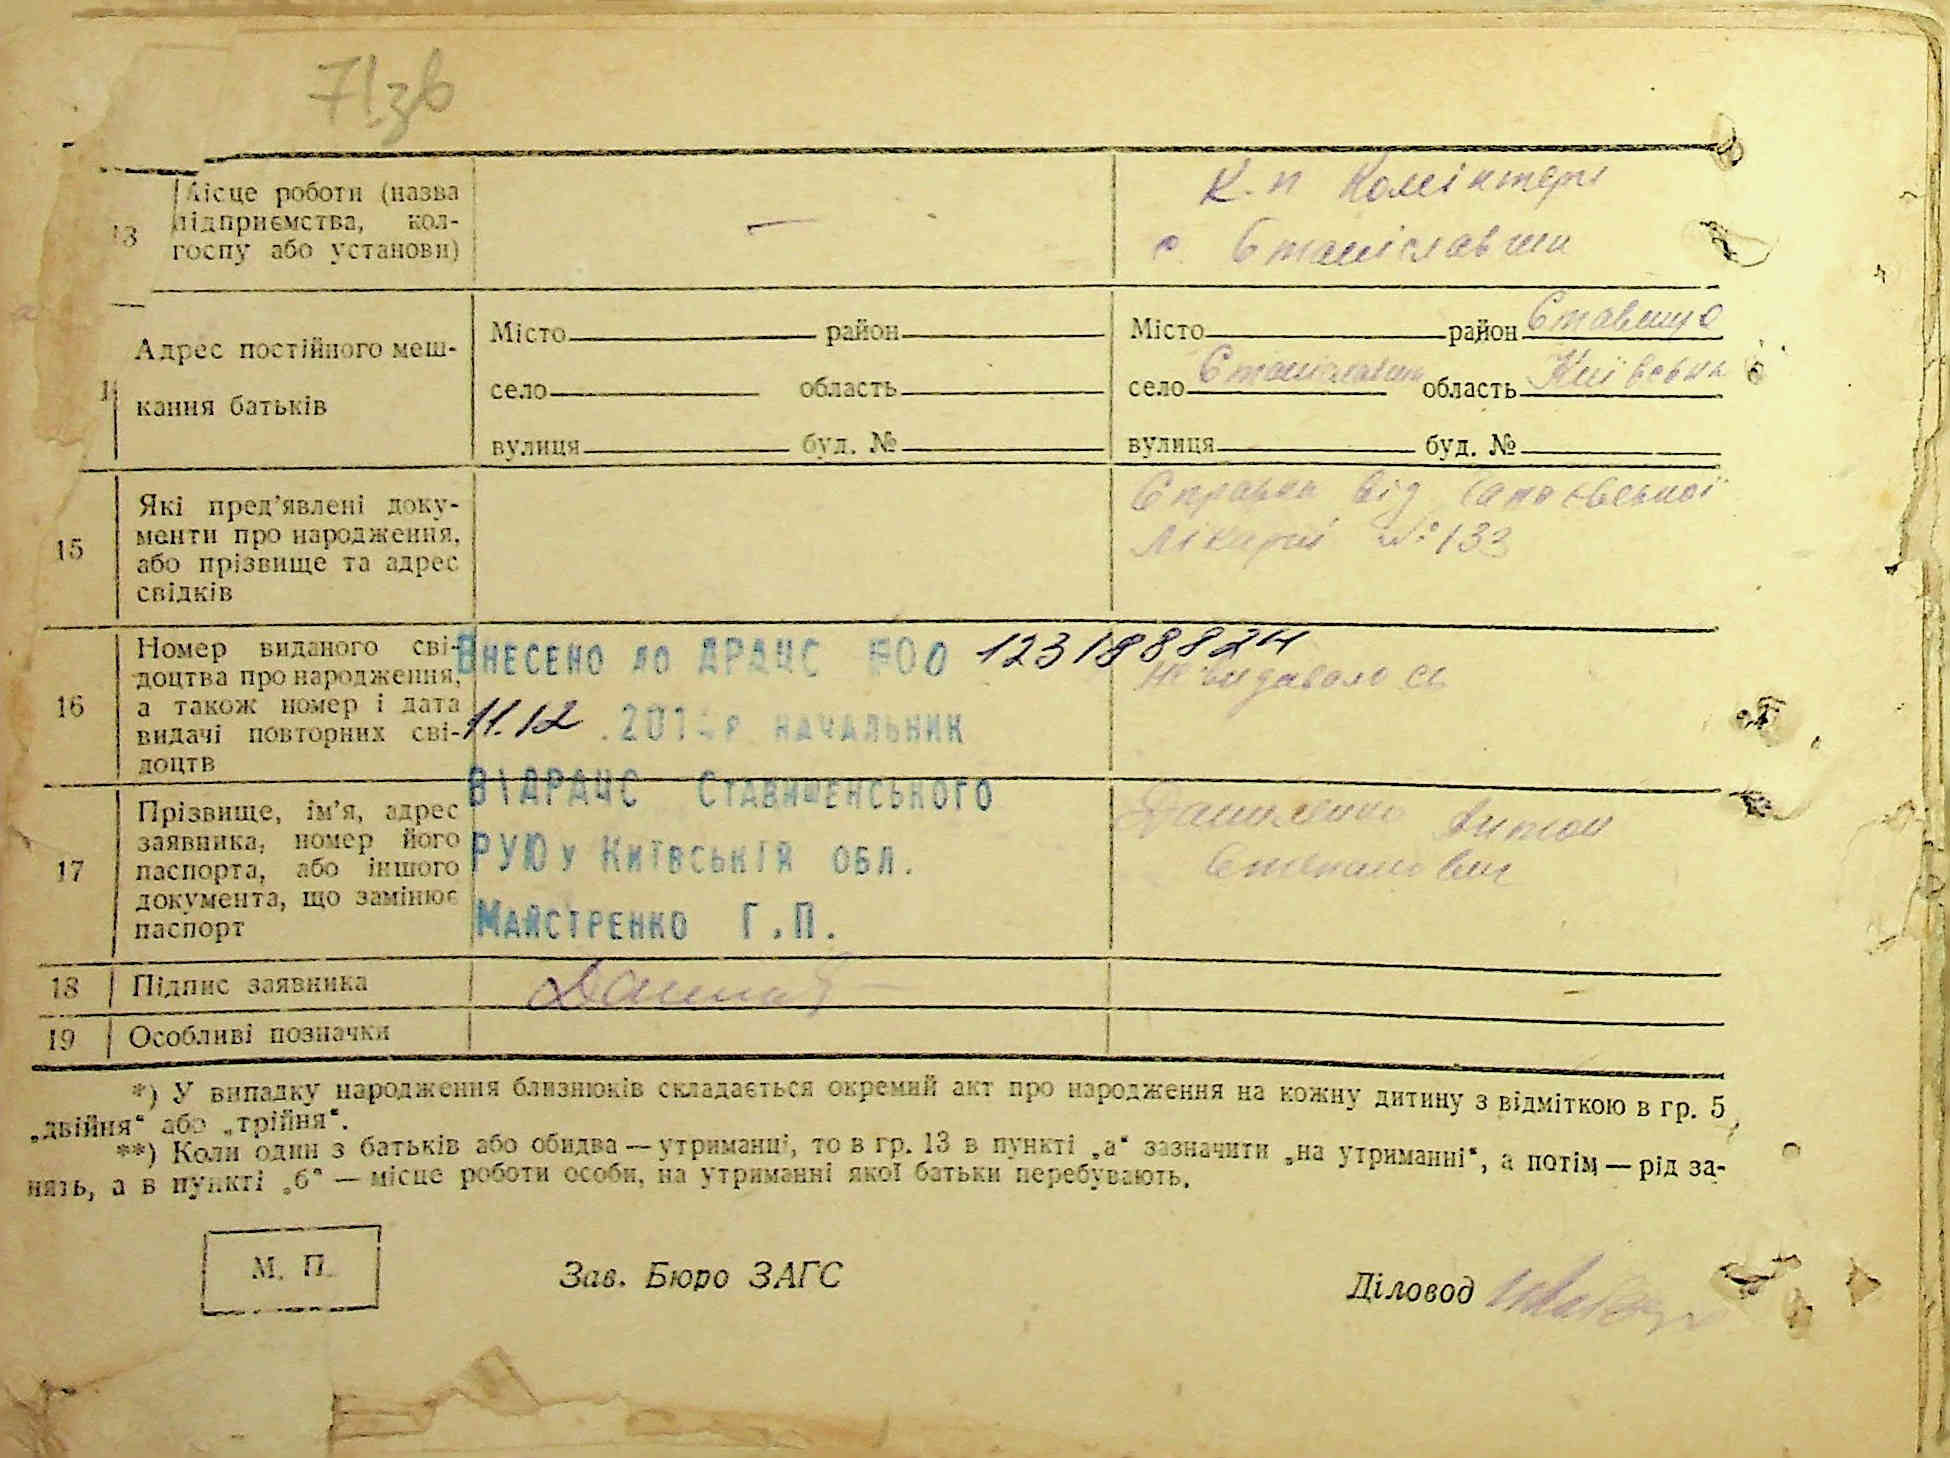 71зв
13 Місце роботи (назва
підприємства, кол-
госпу або установи)
—
К-п Комінтерн
с. Станіславчик
Адрес постійного меш-
кання батьків
Місто район
село область
вулиця буд. №
Місто район Ставище
село Станіславчик область Київська
вулиця буд. №
15 Які пред’явлені доку-
менти про народження,
або прізвище та адрес
свідків
Справка від
Лікарні № 133
16 Номер виданого сві-
доцтва про народження,
а також номер і дата
видачі повторних сві-
доцтв
Внесено до ДРАЦС №00 123188824
11.12 .201 р начальник
ВДРАЦС Ставищенського
РУЮ у Київській обл.
Майстренко Г.П.
Не видавалось
17 Прізвище, ім’я, адрес
заявника, номер його
паспорта, або іншого
документа, що замінює
паспорт
Даниленко Антон
Степанович
18 Підпис заявника
19 Особливі позначки
*) У випадку народження близнюків складається окремий акт про народження на кожну дитину з відміткою в гр. 5,
„двійня“ або „трійня“.
**) Коли один з батьків або обидва — утриманці, то в гр. 13 в пункті „а“ зазначити „на утриманні“, а потім — рід за-
нять, а в пункті „б“ — місце роботи особи, на утриманні якої батьки перебувають.
М. П.
Зав. Бюро ЗАГС
Діловод